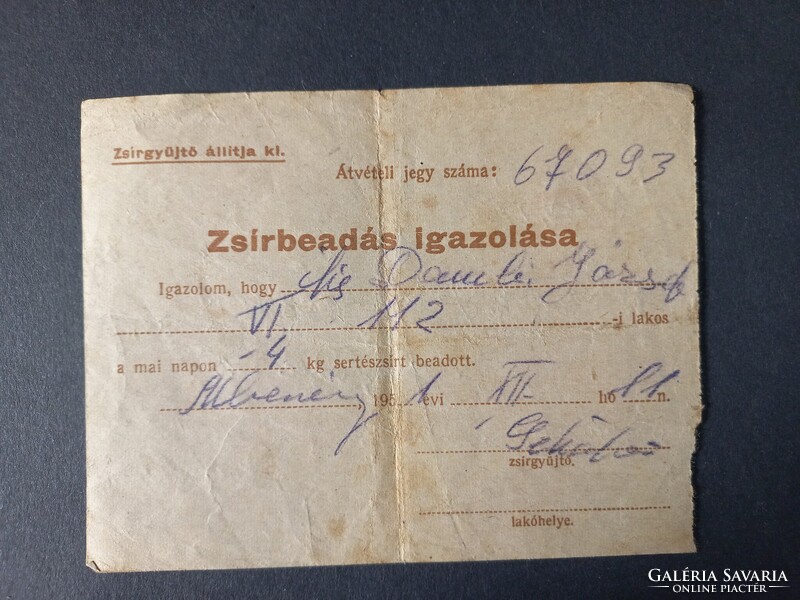 Zsírgyüjtő állitja ki.
Átvételi jegy száma: 67093
Zsírbeadás igazolása
Igazolom, hogy József
VI 112 -i lakos
a mai napon -4 kg sertészsírt beadott.
1951 évi XII. hó 11 n.
zsírgyüjtő.
lakóhelye.
GALÉRIA SAVARIA
ONLINE PIACTÉR